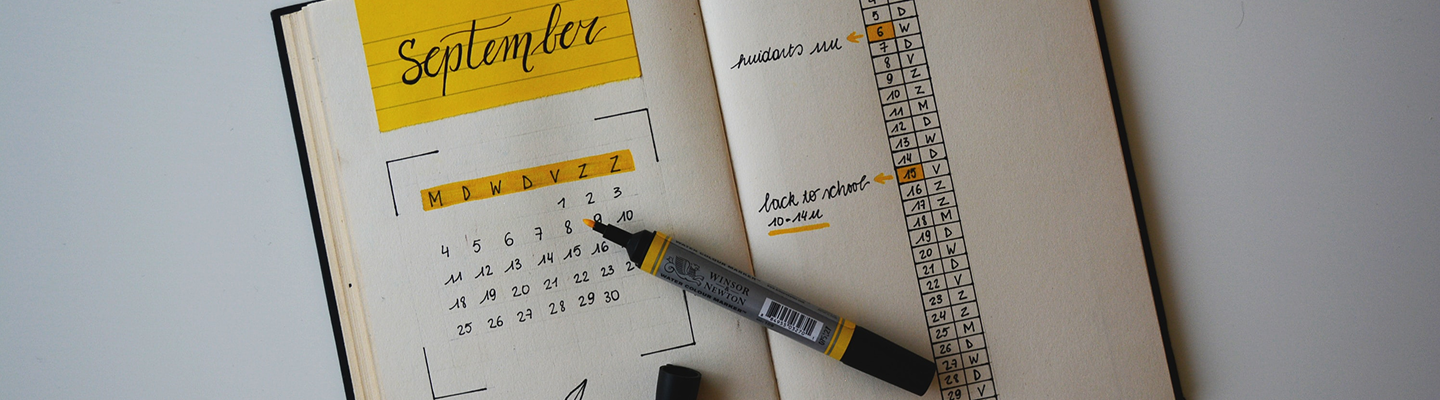 September
M D W D V Z Z
1 2 3
4 5 6 7 8 9 10
11 12 13 14 15 16
18 19 20 21 22 23
25 26 27 28 29 30
WINSOR
&
NEWTON
WATER COLOUR MARKER
huidarts 11u
back to school
10-14u
5 D
6 W
7 D
8 V
9 Z
10 Z
11 M
12 D
13 W
14 D
15 V
16 Z
17 Z
18 M
19 D
20 W
21 D
22 V
23 Z
24 Z
25 M
26 D
27 W
28 D
29 V